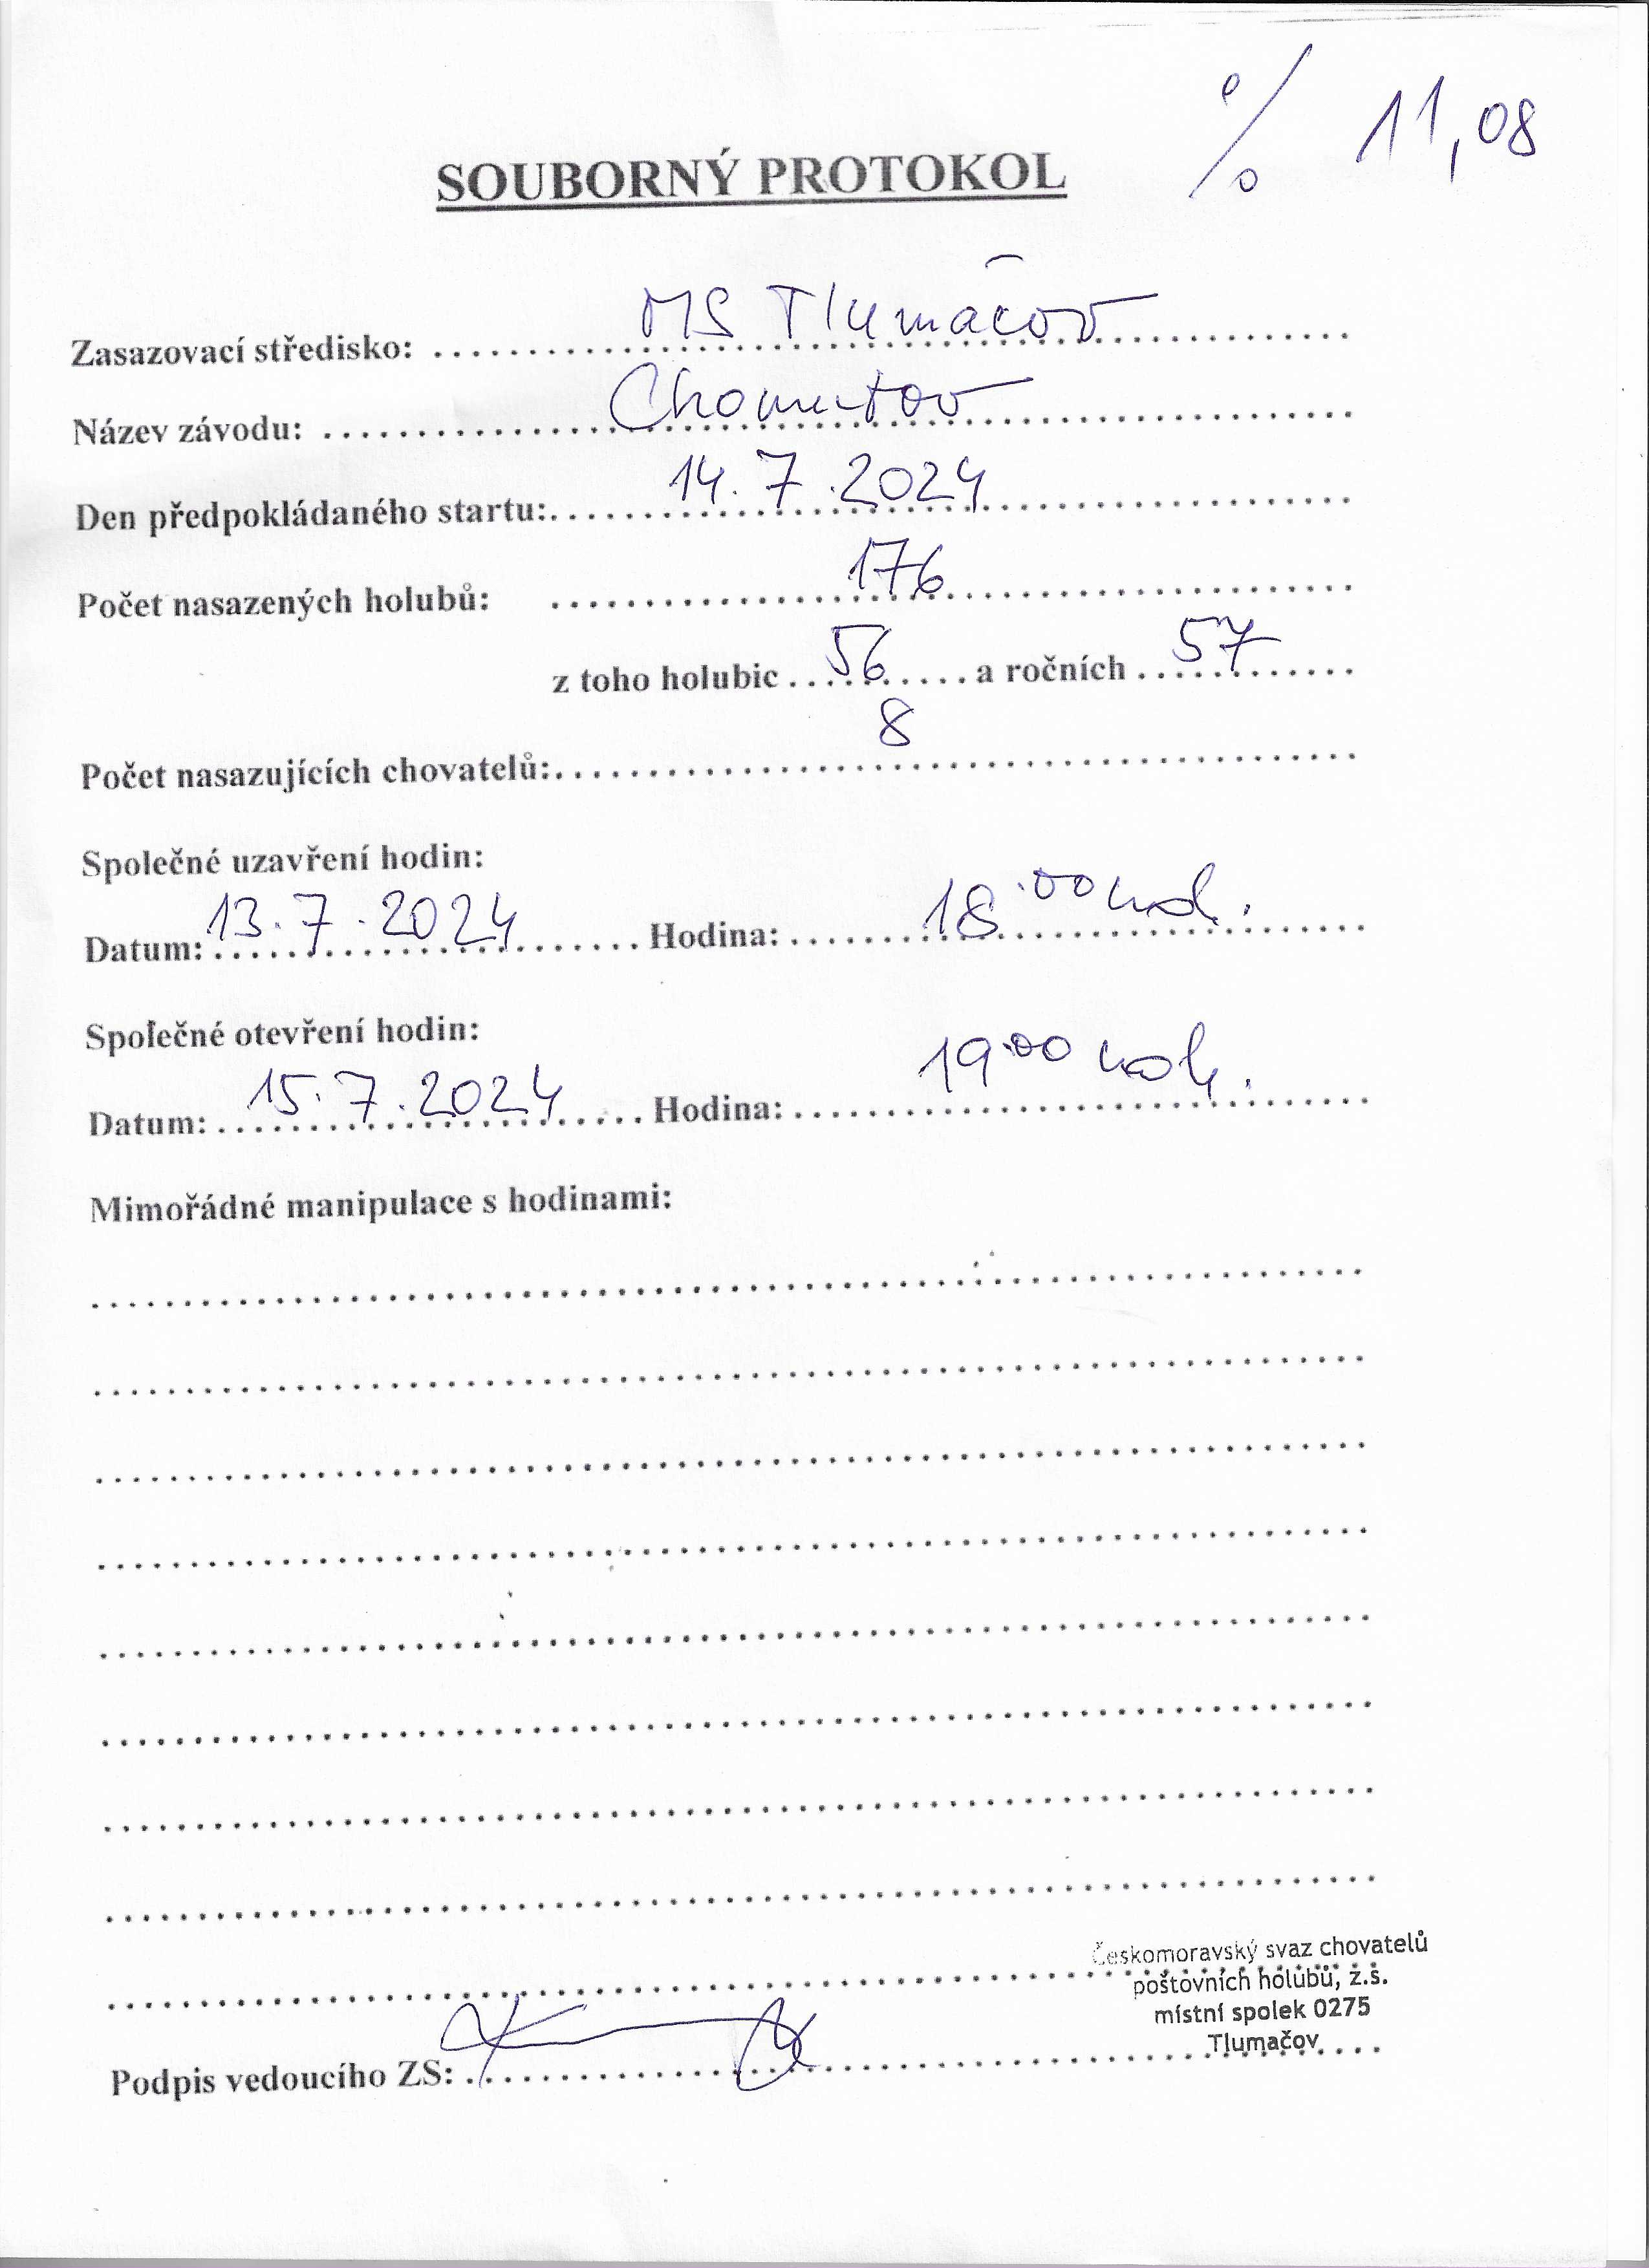 % 11,08
SOUBORNÝ PROTOKOL
Zasazovací středisko: MS Tlumačov
Název závodu: Chomutov
Den předpokládaného startu: 14.7.2024
Počet nasazených holubů: 176
z toho holubic 56 a ročních 57
Počet nasazujících chovatelů: 8
Společné uzavření hodin:
Datum: 13.7.2024 Hodina: 18:00 hod.
Společné otevření hodin:
Datum: 15.7.2024 Hodina: 19:00 hod.
Mimořádné manipulace s hodinami:
Českomoravský svaz chovatelů
poštovních holubů, z.s.
místní spolek 0275
Tlumačov
Podpis vedoucího ZS: